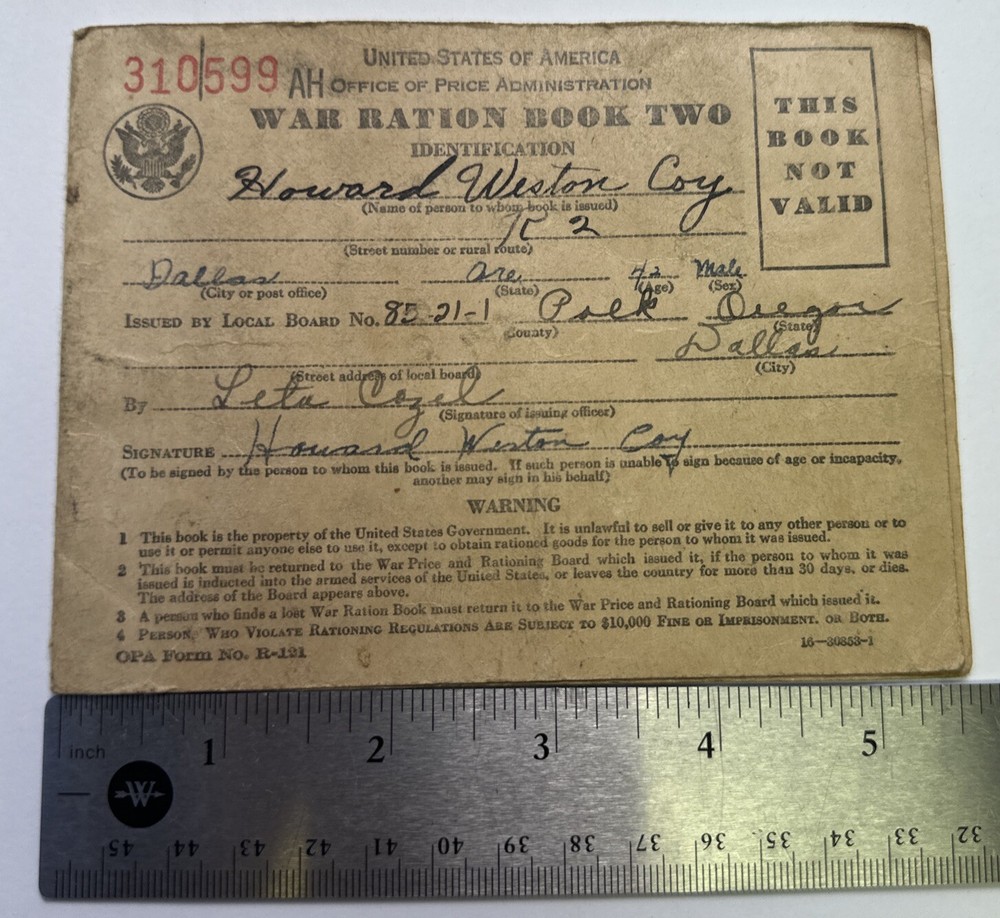 310599 AH
UNITED STATES OF AMERICA
OFFICE OF PRICE ADMINISTRATION
WAR RATION BOOK TWO
IDENTIFICATION
THIS
BOOK
NOT
VALID
Howard Weston Coy
(Name of person to whom book is issued)
R 2
(Street number or rural route)
Dallas Ore 42 Male
(City or post office) (State) (Age) (Sex)
ISSUED BY LOCAL BOARD No. 85-21-1 Polk Oregon
(County) (State)
Dallas
(Street address of local board) (City)
By Leta
(Signature of issuing officer)
SIGNATURE Howard Weston Coy
(To be signed by the person to whom this book is issued. If such person is unable to sign because of age or incapacity,
another may sign in his behalf)
WARNING
1 This book is the property of the United States Government. It is unlawful to sell or give it to any other person or to
use it or permit anyone else to use it, except to obtain rationed goods for the person to whom it was issued.
2 This book must be returned to the War Price and Rationing Board which issued it, if the person to whom it was
issued is inducted into the armed services of the United States, or leaves the country for more than 30 days, or dies.
The address of the Board appears above.
3 A person who finds a lost War Ration Book must return it to the War Price and Rationing Board which issued it.
4 PERSONS WHO VIOLATE RATIONING REGULATIONS ARE SUBJECT TO $10,000 FINE OR IMPRISONMENT, OR BOTH.
OPA Form No. R-121
16—30853-1
inch 1 2 3 4 5
W
45 44 43 42 41 40 39 38 37 36 35 34 33 32